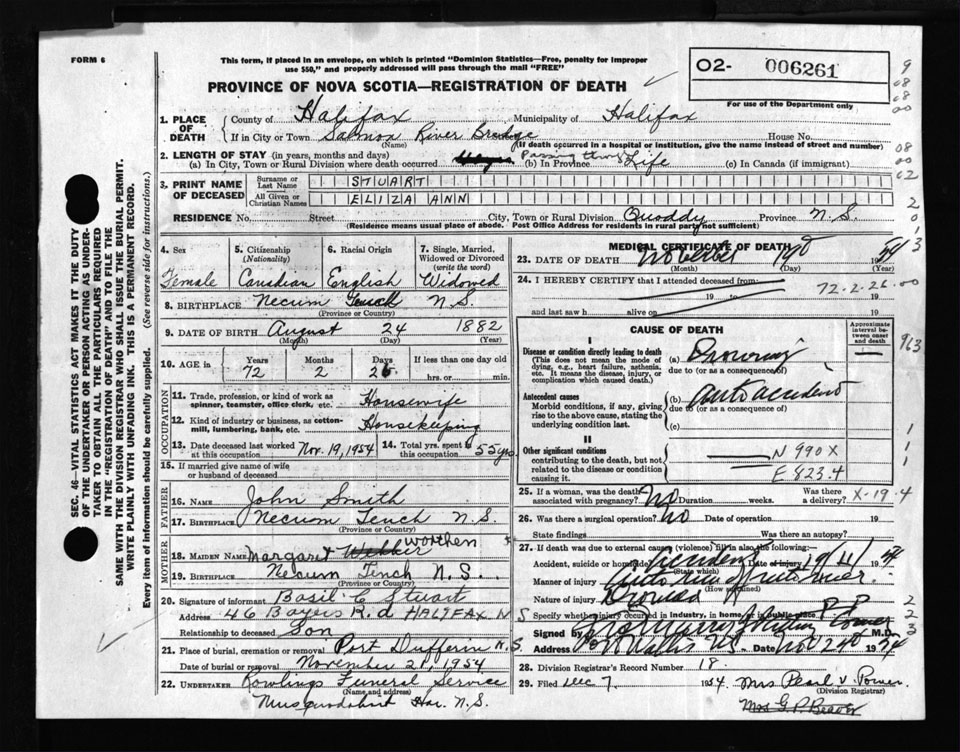 FORM 6
This form, if placed in an envelope, on which is printed "Dominion Statistics—Free, penalty for improper
use $50," and properly addressed will pass through the mail "FREE"
PROVINCE OF NOVA SCOTIA—REGISTRATION OF DEATH
O2- 006261
For use of the Department only
1. PLACE OF DEATH
County of Halifax Municipality of Halifax
If in City or Town Salmon River Bridge House No.
(Name) (If death occurred in a hospital or institution, give the name instead of street and number)
2. LENGTH OF STAY (in years, months and days)
(a) In City, Town or Rural Division where death occurred Passing thru (b) In Province Life (c) In Canada (if immigrant)
3. PRINT NAME OF DECEASED
Surname or Last Name STUART
All Given or Christian Names ELIZA ANN
RESIDENCE No. Street City, Town or Rural Division Quoddy Province N.S.
(Residence means usual place of abode. Post Office Address for residents in rural parts not sufficient)
4. Sex Female
5. Citizenship (Nationality) Canadian
6. Racial Origin English
7. Single, Married, Widowed or Divorced (write the word) Widowed
8. BIRTHPLACE Necum Teuch N.S.
(Province or Country)
9. DATE OF BIRTH August 24 1882
(Month) (Day) (Year)
10. AGE in Years 72 Months 2 Days 26 If less than one day old
hrs. or min.
OCCUPATION
11. Trade, profession, or kind of work as spinner, teamster, office clerk, etc. Housewife
12. Kind of industry or business, as cotton-mill, lumbering, bank, etc. Housekeeping
13. Date deceased last worked at this occupation Nov. 19, 1954 14. Total yrs. spent to this occupation 55 yrs.
15. If married give name of wife or husband of deceased
FATHER
16. NAME John Smith
17. BIRTHPLACE Necum Teuch N.S.
(Province or Country)
MOTHER
18. MAIDEN NAME Margaret Webber WORTHEN
19. BIRTHPLACE Necum Tinch N.S.
(Province or Country)
20. Signature of informant Basil C Stuart
Address 46 Bayers Rd HALIFAX N S
Relationship to deceased Son
21. Place of burial, cremation or removal Port Dufferin N.S.
Date of burial or removal November 21, 1954
22. UNDERTAKER Rowlings Funeral Service
(Name and address)
Musquodoboit Har. N.S.
MEDICAL CERTIFICATE OF DEATH
23. DATE OF DEATH 19 1954
(Month) (Day) (Year)
24. I HEREBY CERTIFY that I attended deceased from
19 to 19
and last saw h alive on 19
72-2-26-00
CAUSE OF DEATH
Approximate interval between onset and death
I
Disease or condition directly leading to death (a) Drowning
(This does not mean the mode of dying, e.g., heart failure, asthenia, etc. It means the disease, injury, or complication which caused death.)
due to (or as a consequence of)
Antecedent causes (b) auto accident
Morbid conditions, if any, giving rise to the above cause, stating the underlying condition last.
due to (or as a consequence of)
(c)
II
Other significant conditions
contributing to the death, but not related to the disease or condition causing it.
N 990X
E 823.4
25. If a woman, was the death associated with pregnancy? No Duration weeks. Was there a delivery? X-19-4
26. Was there a surgical operation? No Date of operation 19
State findings Was there an autopsy?
27. If death was due to external cause (violence) fill in also the following:
Accident, suicide or homicide Accident Date of injury 19 11 1954
(State which)
Manner of injury
(How sustained)
Nature of injury Drowned
Specify whether injury occurred in industry, in home, or in public place P.P
Signed by M.D.
Address Date Nov 24 1954
28. Division Registrar's Record Number 18
29. Filed Dec 7 1954 Mrs Pearl V. Power
(Division Registrar)
Mrs G P. Beaver
SEC. 46—VITAL STATISTICS ACT MAKES IT THE DUTY
OF THE UNDERTAKER OR PERSON ACTING AS UNDER-
TAKER TO OBTAIN ALL THE PARTICULARS REQUIRED
IN THE "REGISTRATION OF DEATH" AND TO FILE THE
SAME WITH THE DIVISION REGISTRAR WHO SHALL ISSUE THE BURIAL PERMIT.
WRITE PLAINLY WITH UNFADING INK. THIS IS A PERMANENT RECORD.
Every item of information should be carefully supplied. (See reverse side for instructions.)